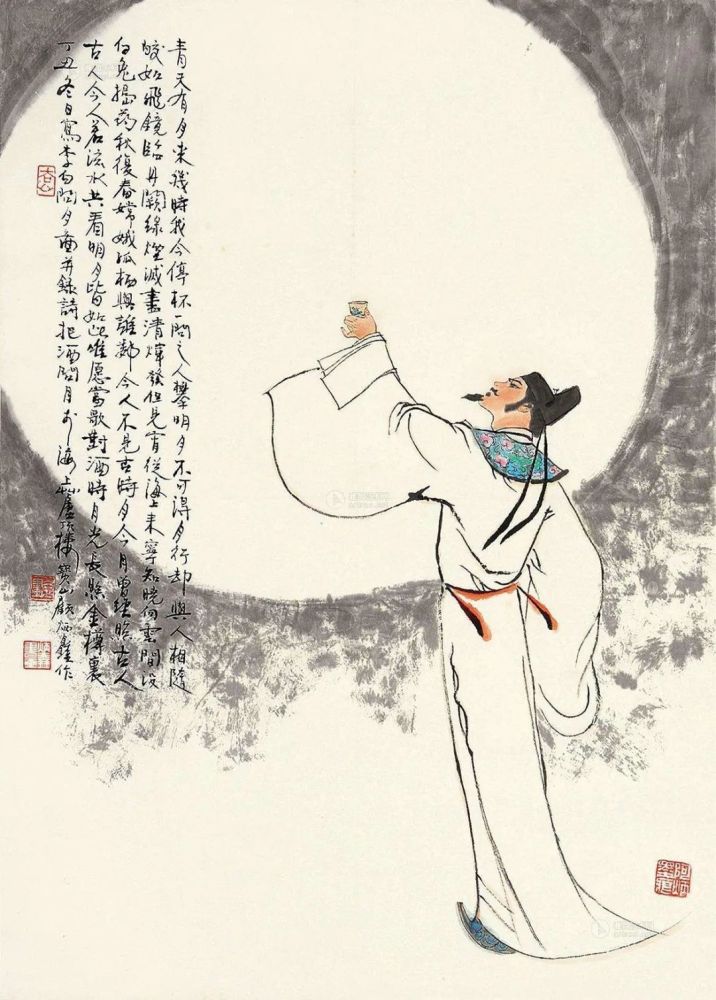 青天有月来幾時我今停杯一問之人攀明月不可得月行却與人相隨
皎如飛鏡臨丹闕緑煙滅盡清輝發但見宵從海上来寧知曉向雲間没
白兔搗葯秋復春嫦娥孤栖與誰鄰今人不見古時月今月曾經照古人
古人今人若流水共看明月皆如此唯愿當歌對酒時月光長照金樽裏
丁丑冬日寫李白問月圖并録詩把酒問月於海上樓寶山顧炳鑫作